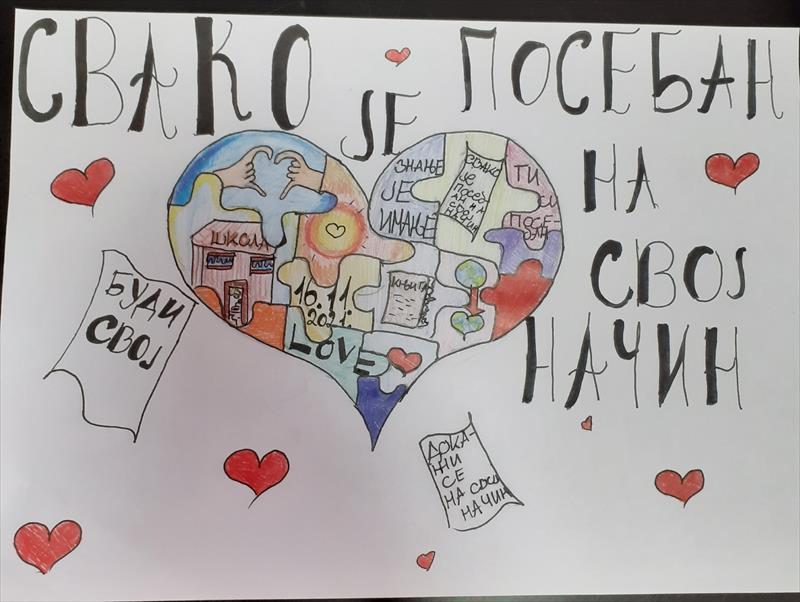 СВАКО
ЈЕ
ПОСЕБАН
НА
СВОЈ
НАЧИН
ЗНАЊЕ
ЈЕ
ИМАЊЕ
СВАКО
ЈЕ
ПОСЕБ
АН НА
СВОЈ
НАЧИН
ТИ
СИ
ПОСЕ-
БАН
ШКОЛА
16.11.
2021.
КЊИГА
LOVE
БУДИ
СВОЈ
ДОКА-
ЖИ
СЕ
НА СВОЈ
НАЧИН